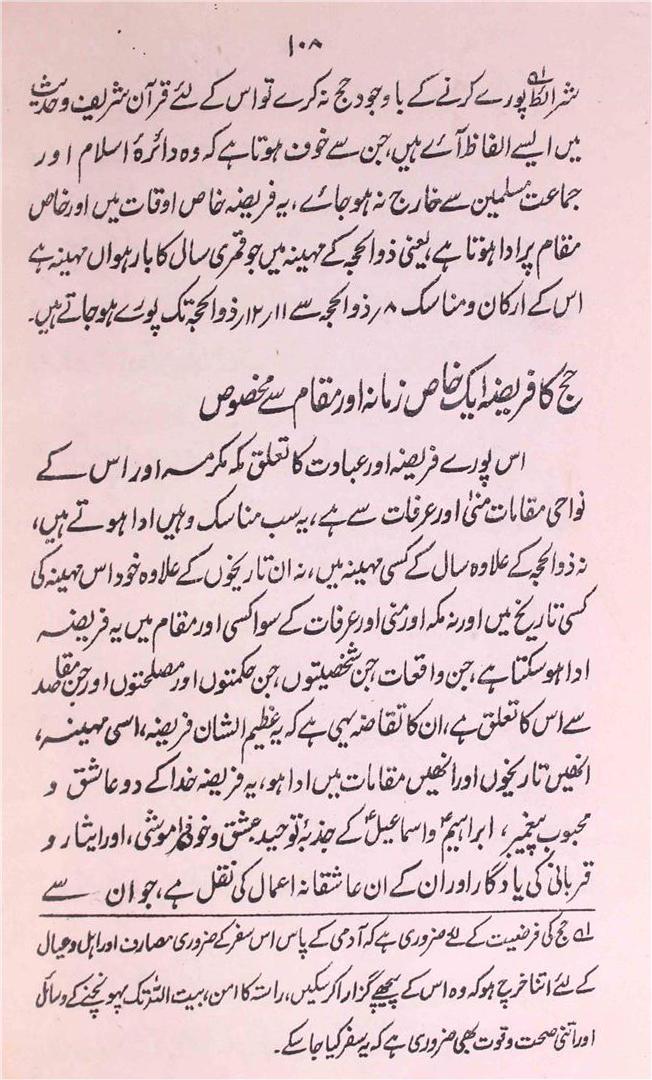 ۱۰۸
شرائط لہ پورے کرنے کے باوجود حج نہ کرے تو اس کے لئے قرآن شریف و حدیث
میں ایسے الفاظ آئے ہیں، جن سے خوف ہوتا ہے کہ وہ دائرۂ اسلام اور
جماعت مسلمین سے خارج نہ ہو جائے، یہ فریضہ خاص اوقات میں اور خاص
مقام پر ادا ہوتا ہے، یعنی ذوالحجہ کے مہینہ میں جو قمری سال کا بارہواں مہینہ ہے
اس کے ارکان و مناسک ۸؍ ذوالحجہ سے ۱۱؍۱۲؍ ذوالحجہ تک پورے ہو جاتے ہیں۔
حج کا فریضہ ایک خاص زمانہ اور مقام سے مخصوص
اس پورے فریضہ اور عبادت کا تعلق مکہ مکرمہ اور اس کے
نواحی مقامات منیٰ اور عرفات سے ہے، یہ سب مناسک وہیں ادا ہوتے ہیں،
نہ ذوالحجہ کے علاوہ سال کے کسی مہینہ میں، نہ ان تاریخوں کے علاوہ خود اس مہینہ کی
کسی تاریخ میں اور نہ مکہ اور منی اور عرفات کے سوا کسی اور مقام میں یہ فریضہ
ادا ہو سکتا ہے، جن واقعات جن شخصیتوں، جن حکمتوں اور مصلحتوں اور جن مقاصد
سے اس کا تعلق ہے، ان کا تقاضہ یہی ہے کہ یہ عظیم الشان فریضہ، اسی مہینہ،
انھیں تاریخوں اور انھیں مقامات میں ادا ہو، یہ فریضہ خدا کے دو عاشق و
محبوب پیغمبر، ابراہیمؑ و اسماعیلؑ کے جذبۂ توحید، عشق و خود فراموشی، اور ایثار و
قربانی کی یادگار اور ان کے ان عاشقانہ اعمال کی نقل ہے، جو ان سے
لہ حج کی فرضیت کے لئے ضروری ہے کہ آدمی کے پاس اس سفر کے ضروری مصارف اور اہل و عیال
کے لئے اتنا خرچ ہو کہ وہ اس کے پیچھے گزارا کر سکیں، راستہ کا امن، بیت اللہ تک پہونچنے کے وسائل
اور اتنی صحت و قوت بھی ضروری ہے کہ یہ سفر کیا جا سکے۔